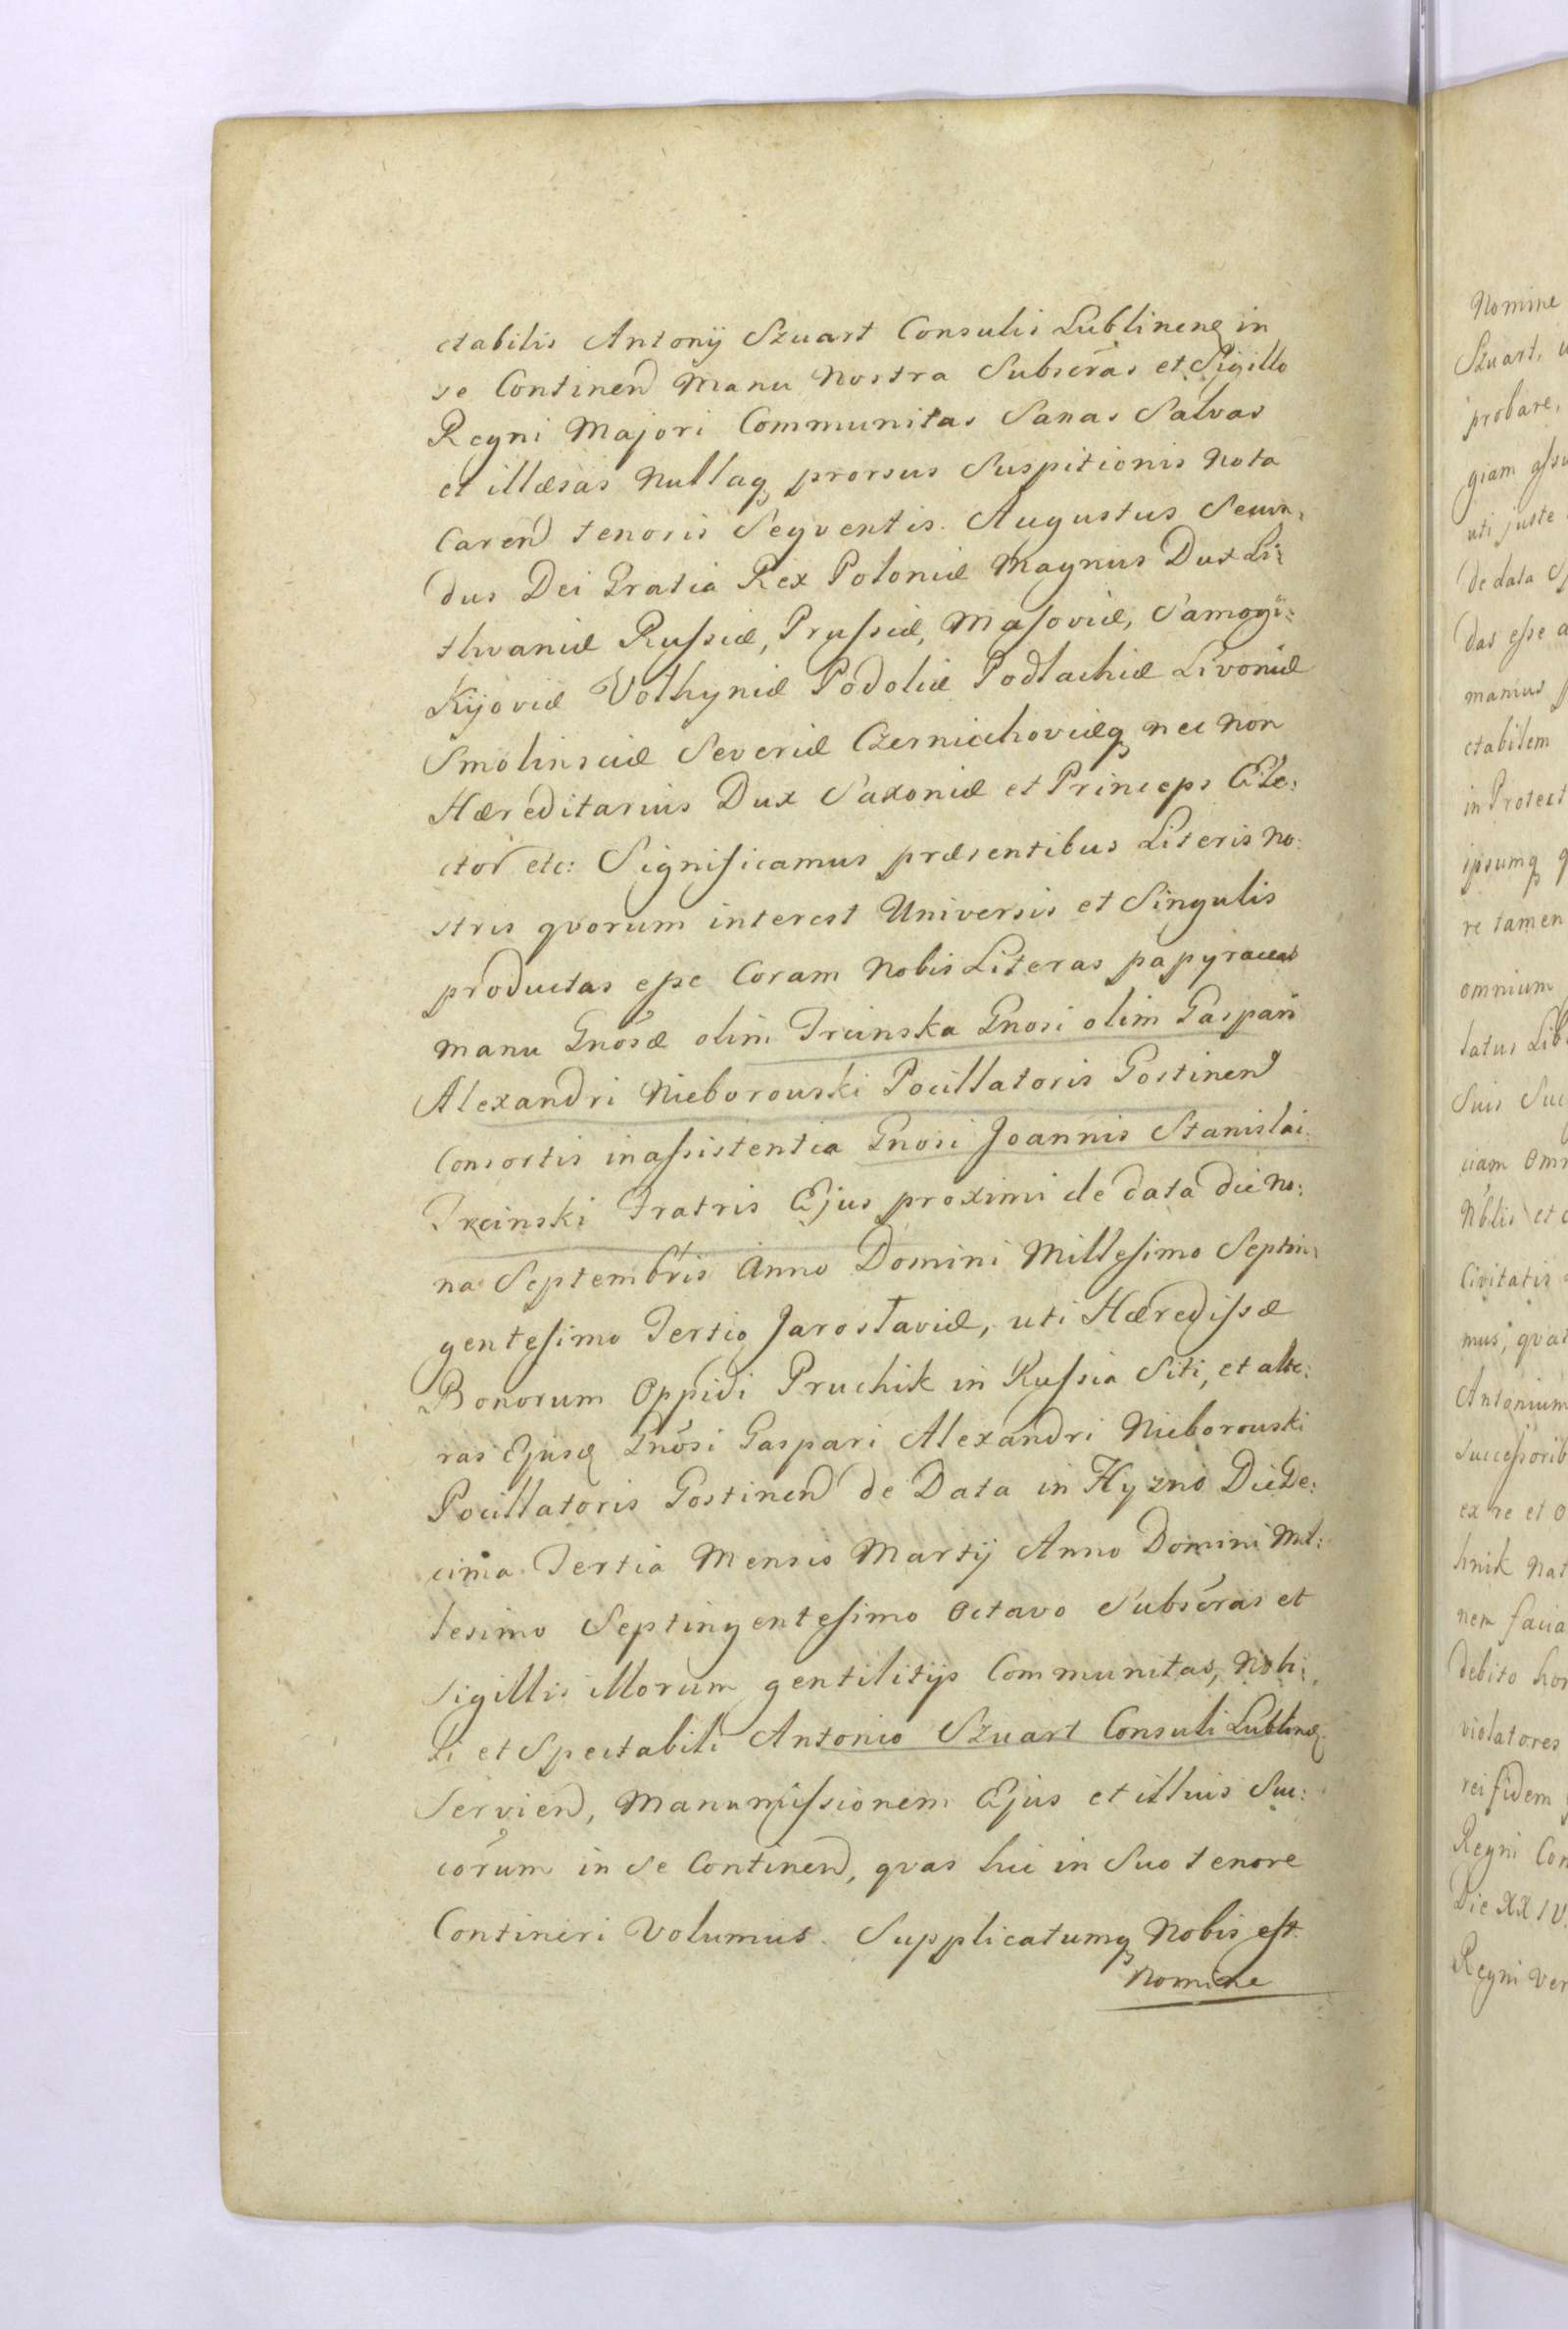 ctabilis Antonij Szuart Consulis Lublinenꝫ in
se Continen̄ Manu Nostra Subscr̄as et Sigillo
Regni Majori Communitas Sanas Salvas
et illæsas Nullaqꝫ prorsus Suspitionis Nota
Caren̄ tenoris Seqventis. Augustus Secun:
dus Dei Gratia Rex Poloniæ Magnus Dux Li:
thvaniæ Russiæ, Prussiæ, Masoviæ, Samogi:
Kijoviæ Volhyniæ Podoliæ Podlachiæ Livoniæ
Smolinsciæ Severiæ Czerniechoviæqꝫ nec non
Hæreditarius Dux Saxoniæ et Princeps Ele:
ctor etc: Significamus præsentibus Literis No:
stris qvorum interest Universis et Singulis
productas esse Coram Nobis Literas papyraceas
manu Gnōsæ olim Trcinska Gnosi olim Gaspari
Alexandri Nieborouski Pocillatoris Gostinen̄
Consortis in assistentia Gnosi Joannis Stanislai
Trcinski Fratris Ejus proximi de data die No:
na Septembris Anno Domini Millesimo Septin:
gentesimo Tertio Jaroslaviæ, uti Hæredissæ
Bonorum Oppidi Pruchik in Russia Siti, et alte:
ras Ejusꝗ Gnōsi Gaspari Alexandri Nieborouski
Pocillatoris Gostinen̄ de Data in Hyzno Die De:
cima Tertia Mensis Martij Anno Domini Mil:
lesimo Septingentesimo Octavo Subscr̄as et
Sigillis illorum gentilitijs Communitas, Nobi:
li et Spectabili Antonio Szuart Consuli Lublinꝫ
Servien̄, Manumissionem Ejus et illius Suc:
cōrum in se Continen̄, qvas hic in Suo tenore
Contineri Volumus. Supplicatumqꝫ Nobis est
Nomine
Nomine
Szuart, u
probare,
giam
uti juste
de data
das esse a
manus
ctabilem
in Protect
ipsumqꝫ q
re tamen
omnium
latus Lib
Suis Suc
ciam Omn
Nblis et c
Civitatis
mus, qvat
Antonium
successorib
ex re et o
hnik Nat
nem facia
debito hon
violatores
rei fidem
Regni Con
Die XXIV.
Regni Ver